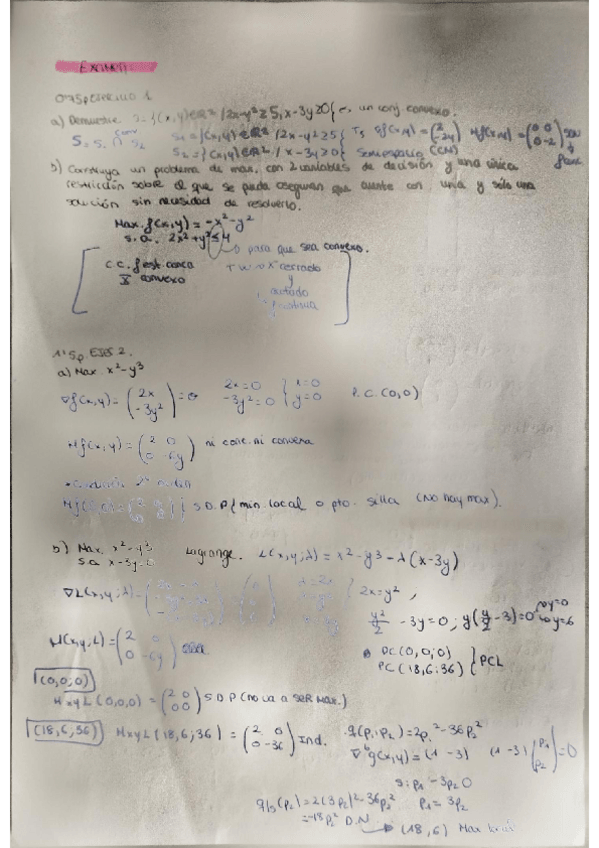 EXAMEN
0'75p EJERCICIO 1.
a) Demuestre S={(x,y)∈R² /2x-y²≥5, x-3y≥0} es un conj. convexo.
S = S₁ ∩ S₂ S₁={(x,y)∈R² /2x-y²≥5} ∇f(x,y)=(2 -2y) Hf(x,y)=(0 0 0 -2) SDN
conv
S₂={(x,y)∈R² / x-3y≥0} Semiespacio (CCN)
b) Construya un problema de max. con 2 variables de decisión y una única
restricción sobre el que se pueda asegurar que cuente con una y sólo una
solución sin necesidad de resolverlo.
Max. f(x,y)=-x²-y²
s.a. 2x²+y²≤4
para que sea convexo.
C.C. f est. conca
X convexo
T W X cerrado
y
acotado
f continua
1'5p. EJER 2.
a) Max. x²-y³
∇f(x,y)=(2x -3y²)=0 2x=0 -3y²=0 } x=0 y=0 P.C.(0,0)
Hf(x,y)=(2 0 0 -6y) ni conc. ni convexa
Hf(0,0)=(2 0 0 0) S.D.P { min. local o pto. silla (No hay max).
b) Max. x²-y³ Lagrange. L(x,y;λ)=x²-y³-λ(x-3y)
s.a x-3y=0
∇L(x,y;λ)= } 2x=y²,
y²/2 -3y=0; y(y/2-3)=0 y=0 y=6
H(x,y;L)=(2 0 0 -6y)
PC(0,0;0)
PC(18,6;36) } PCL
(0,0;0)
HxyL(0,0,0)=(2 0 0 0) SDP (no va a ser max.)
(18,6,36) HxyL(18,6;36)=(2 0 0 -36) Ind. q(p₁,p₂)=2p₁²-36p₂²
∇ᵗg(x,y)=(1 -3) (1 -3)(p₁ p₂)=0
s: p₁-3p₂ 0
q/s(p₂)=2(3p₂)²-36p₂² p₁=3p₂
=-18p₂² D.N → (18,6) Max local